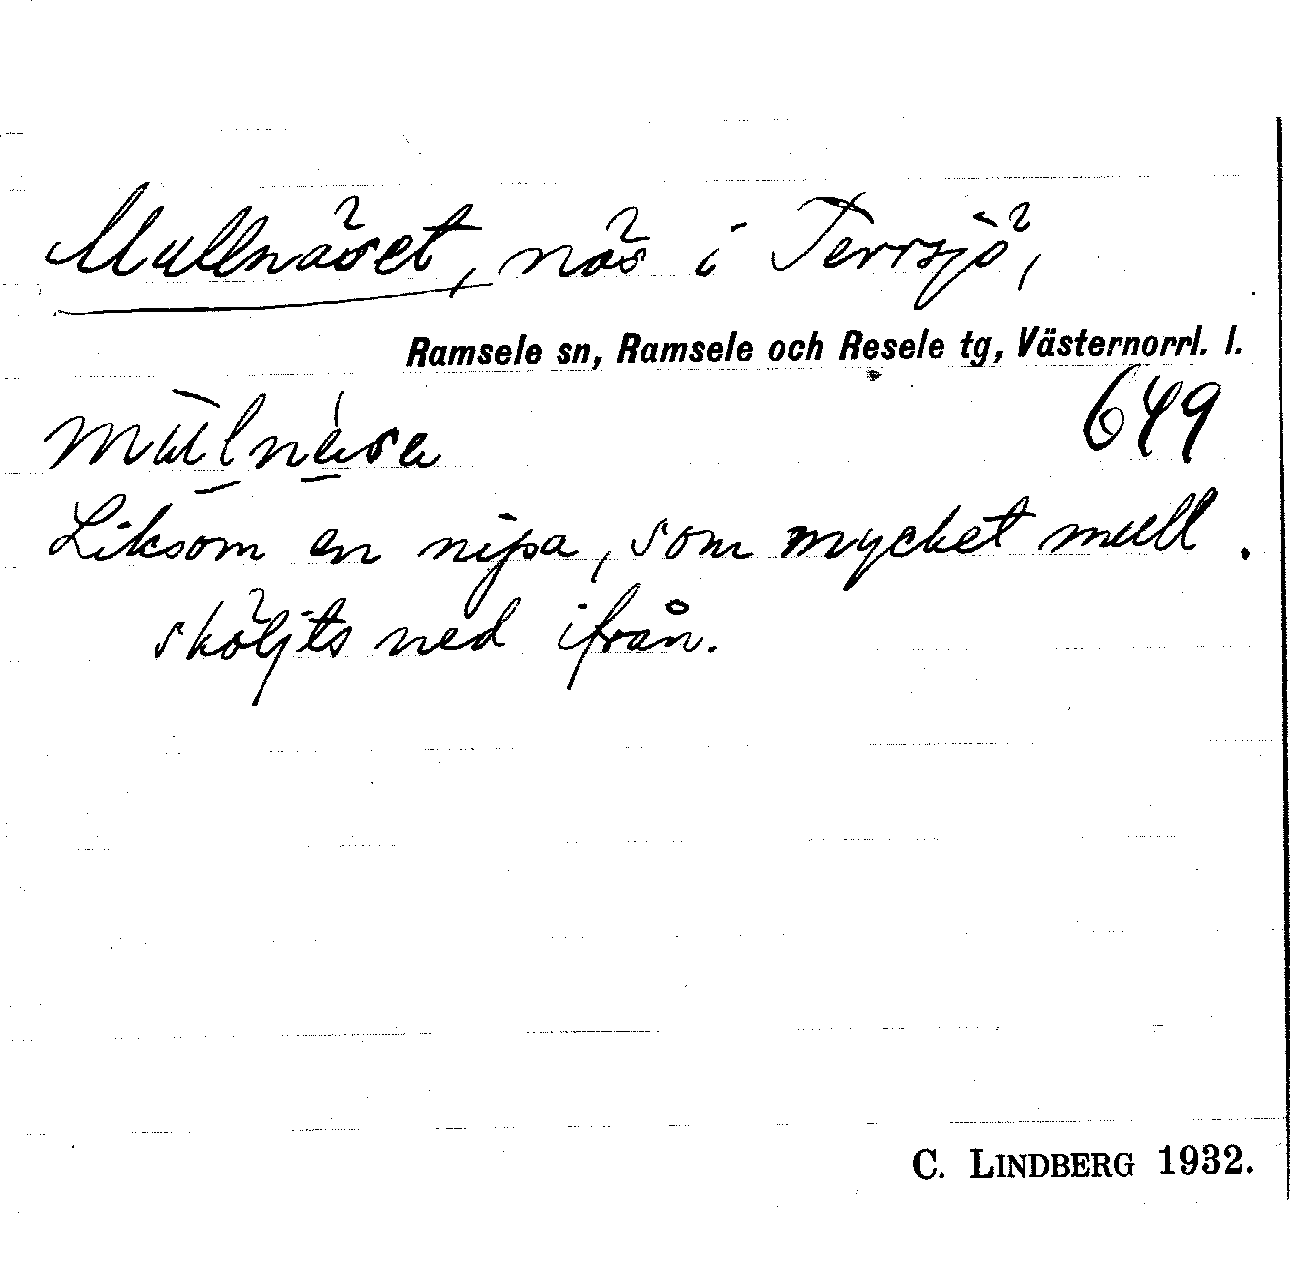 Mullnäset, näs i Terrsjö,
Ramsele sn, Ramsele och Resele tg, Västernorrl. l.
649
Liksom en nipa, som mycket mull
sköljts ned ifrån.
C. LINDBERG 1932.